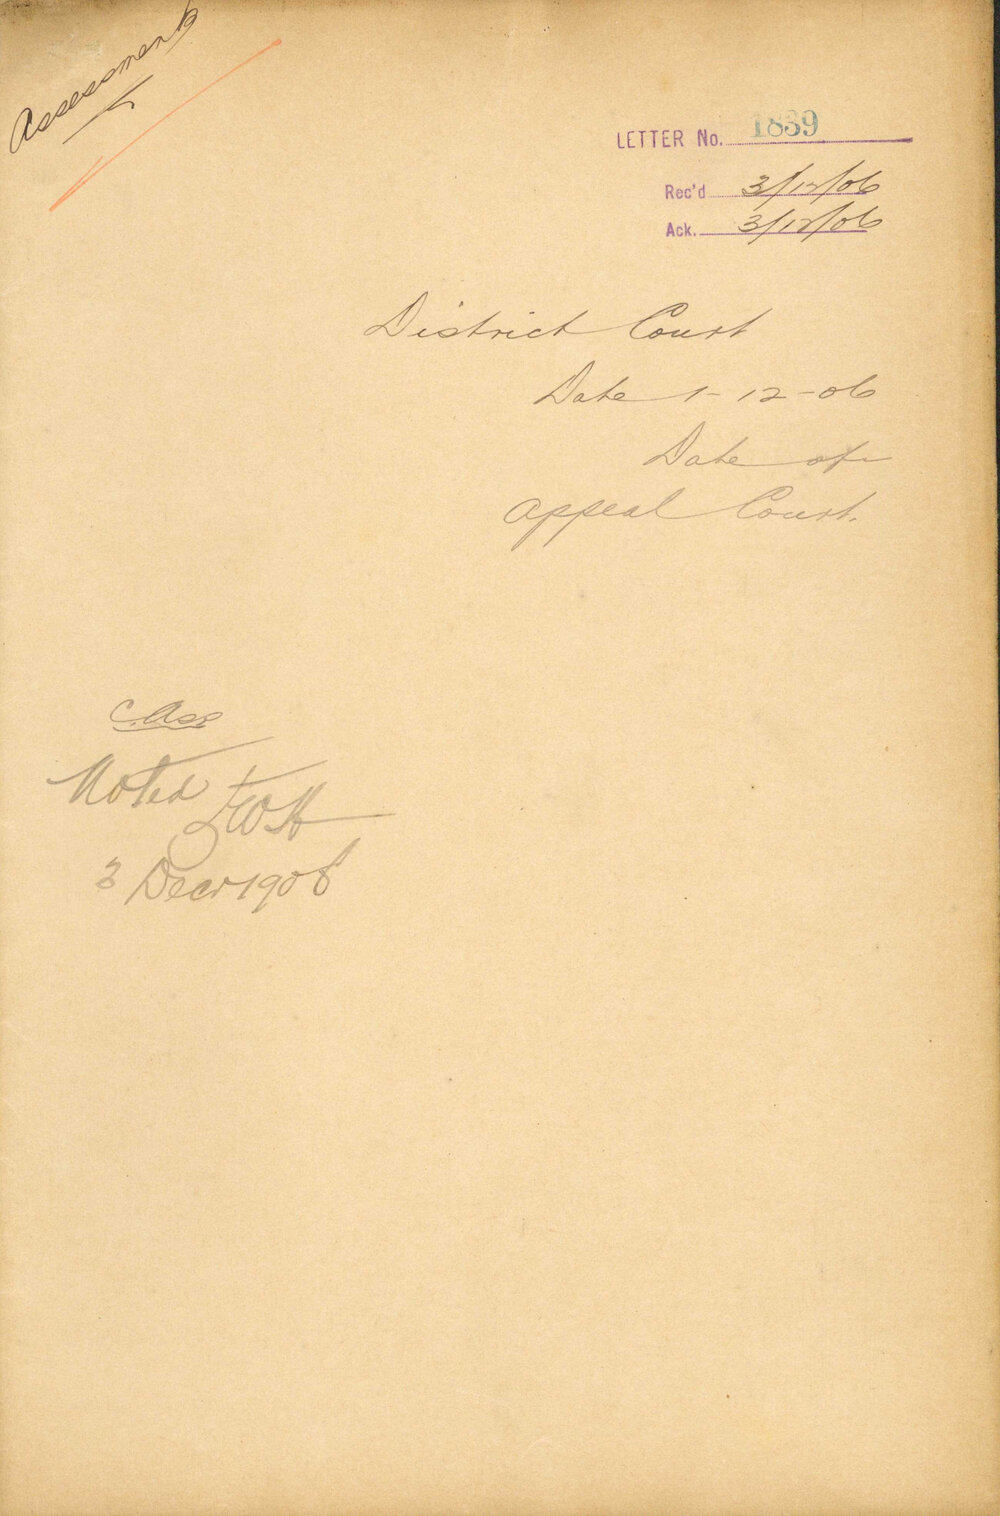 Assessment
LETTER No. 1839
Rec'd 3/12/06
Ack. 3/12/06
District Court
Date 1-12-06
Date of
Appeal Court.
Noted
3 Decr 1906